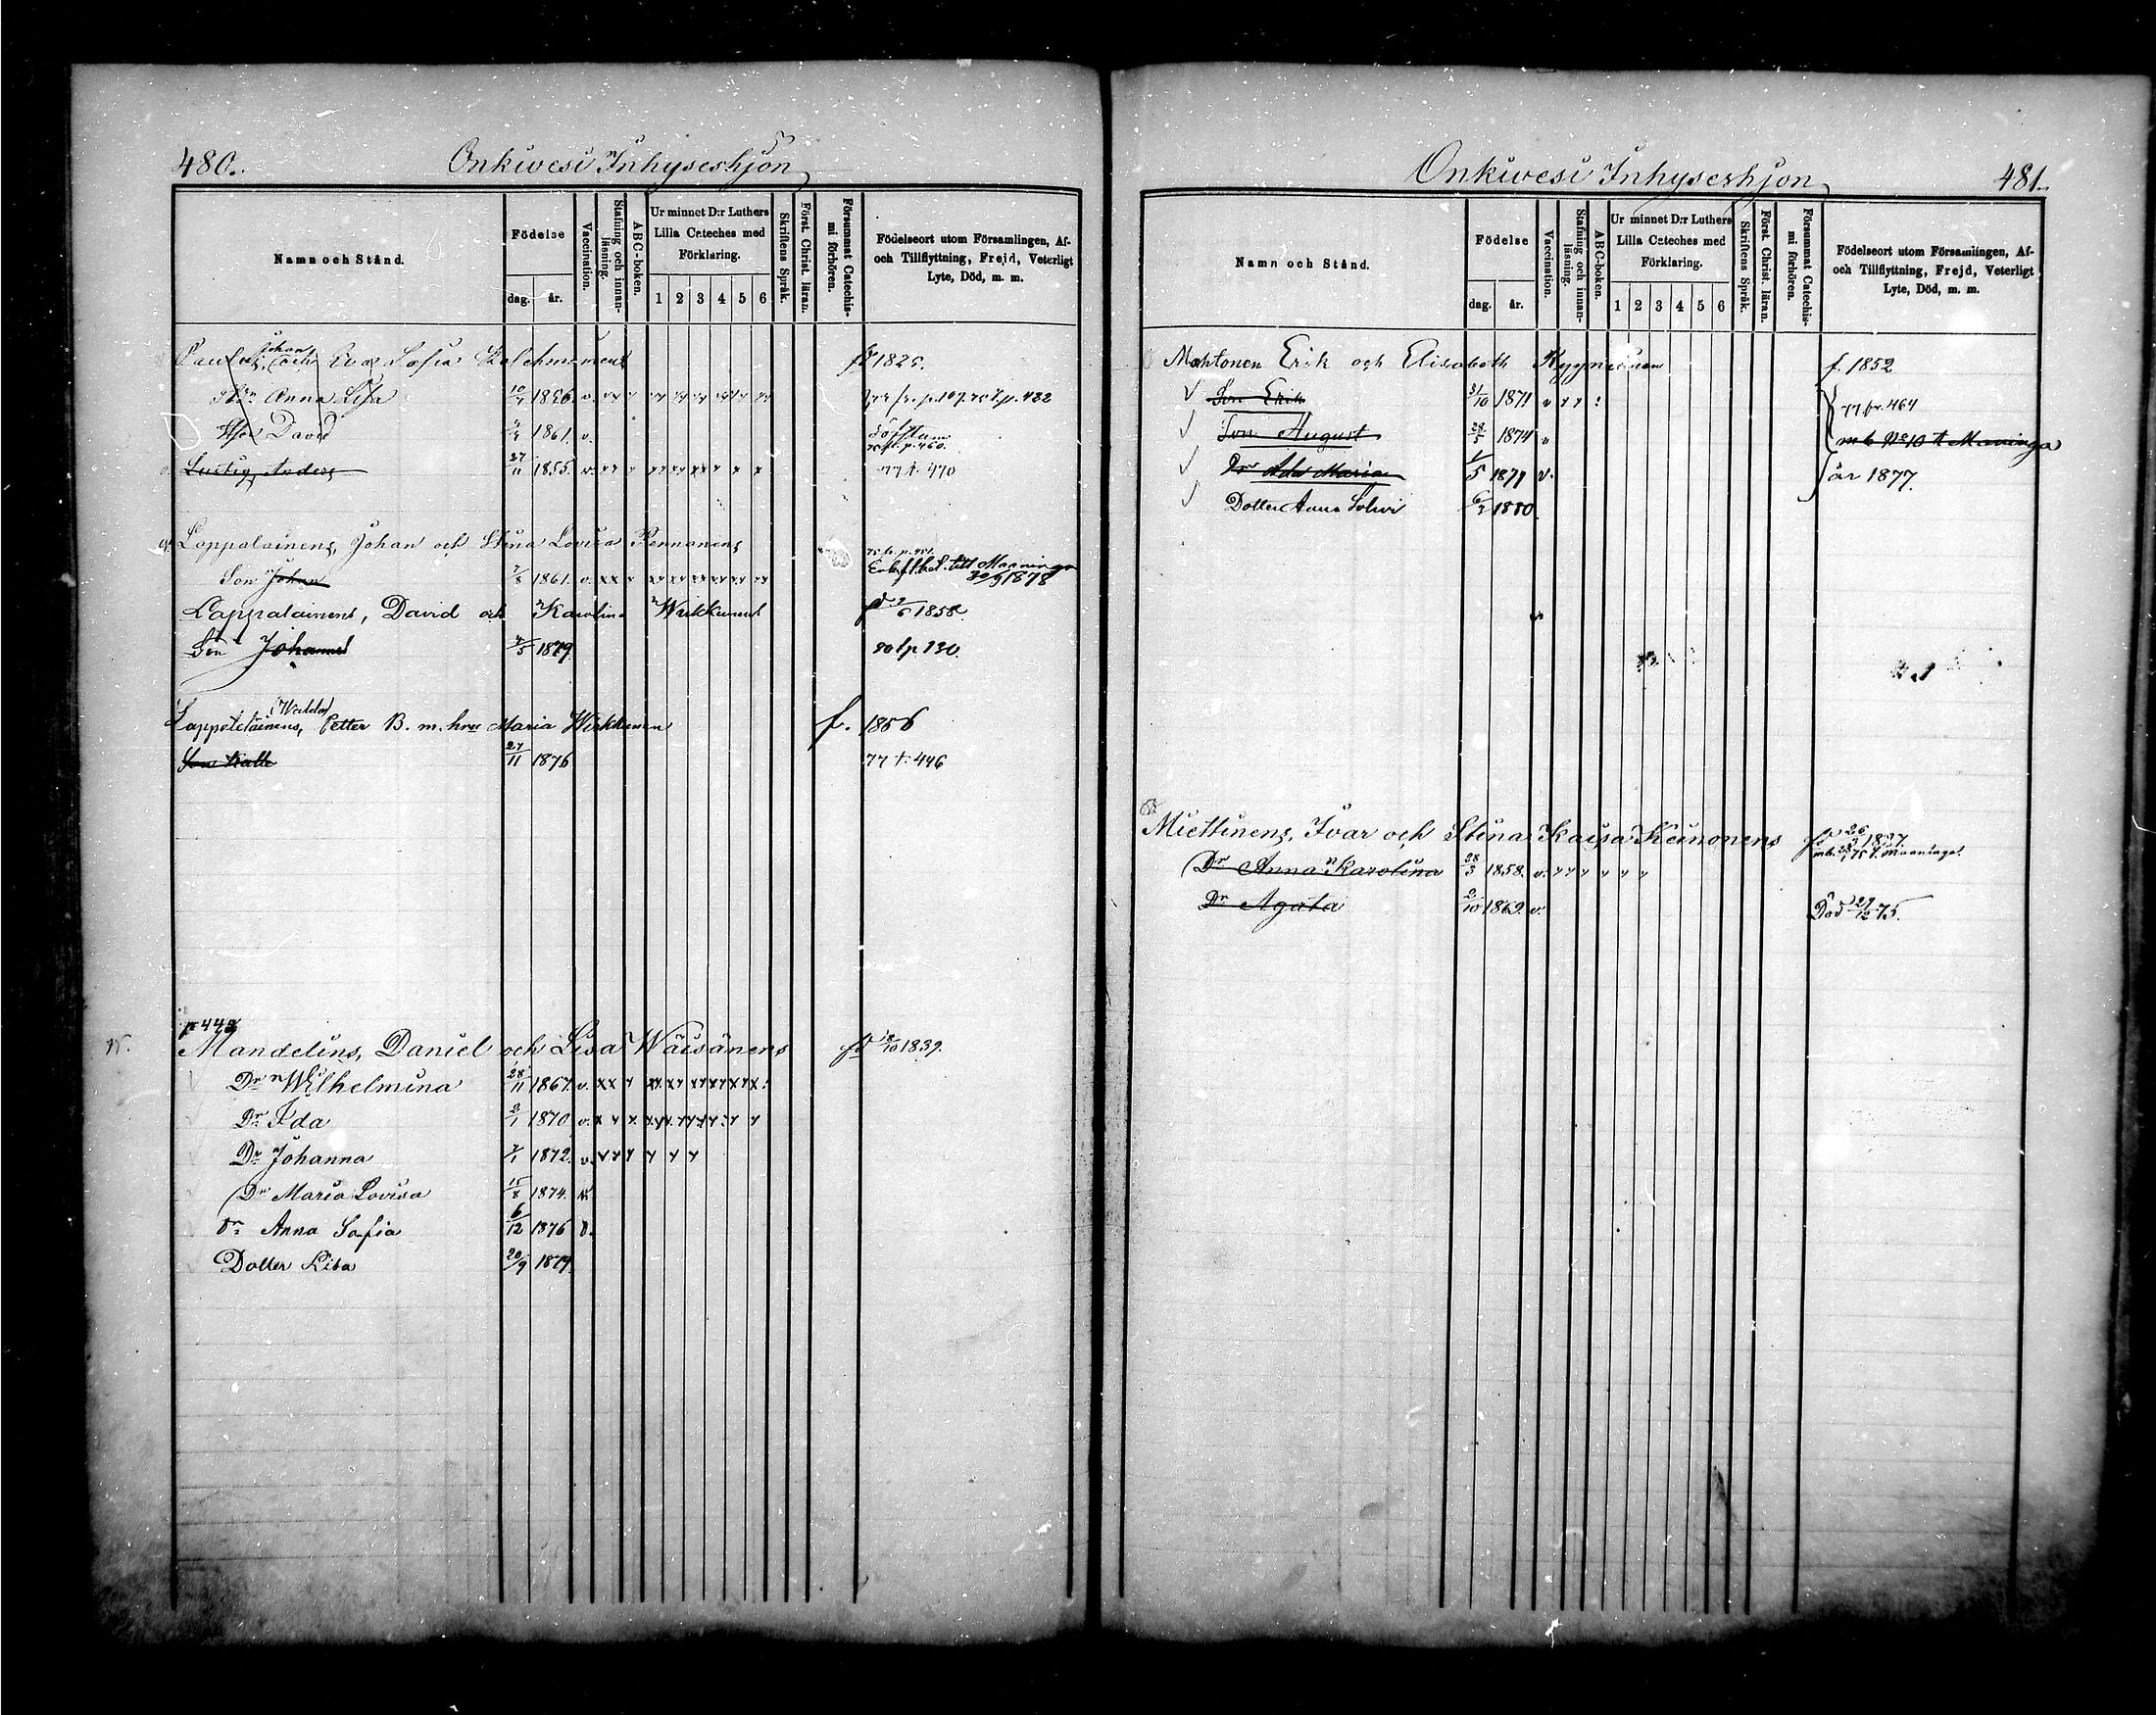 480.
Onkiwesi Inhyseshjon
Namn och Stånd.
Födelse
dag. år.
Vaccination.
Stafning och innanläsning.
ABC-boken.
Ur minnet D:r Luthers
Lilla Cateches med
Förklaring.
1 2 3 4 5 6
Skriftens Språk.
Först. Christ. läran.
Försummat Catechismi förhören.
Födelseort utom Församlingen, Af-
och Tillflyttning, Frejd, Veterligt
Lyte, Död, m. m.
Johan
och Eva Sofia
Anna Lisa 1856. v.
David 1861. v. p. 460.
Lustig, Anders 27/11 1855. v. 77 t. 470
Lappalainens, Johan och Stina Lovisa Pennanens
Son Johan 7/8 1861. v. till Maaninga 30/9 1878
Lappalainens, David och Karolina Wirkkunens 1858.
Son Johannes 4/5 1879. 80 t p. 130.
Lappalainens, Petter B. m. hru Maria Wirkkunen f. 1856
Son Kalle 27/11 1876 77 t. 446
p 442
Mandelins, Daniel och Lisa Wäisänens fd 18/10 1839.
Dr Wilhelmina 28/11 1867. v.
Dr Ida 2/1 1870 v.
Dr Johanna 7/1 1872. v.
Dr Maria Lovisa 15/8 1874.
Dr Anna Sofia 6/12 1876 v.
Dotter Lisa 20/9 1879.
Onkiwesi Inhyseshjon
481.
Namn och Stånd.
Födelse
dag. år.
Vaccination.
Stafning och innanläsning.
ABC-boken.
Ur minnet D:r Luthers
Lilla Cateches med
Förklaring.
1 2 3 4 5 6
Skriftens Språk.
Först. Christ. läran.
Försummat Catechismi förhören.
Födelseort utom Församlingen, Af-
och Tillflyttning, Frejd, Veterligt
Lyte, Död, m. m.
Mahtonen Erik och Elisabeth f. 1852
Son Erik 31/10 1871 v 77 fr. 464
Son August 28/5 1874 v mb No 10 t Maaninga
Dr Ada Maria 1/5 1877 v. år 1877.
Dotter Anna 1880
Miettinens, Ivar och Stina Kaisa Keinonens 1837.
Dr Anna Karolina 28/3 1858. v.
Dr Agata 2/10 1862. v. Död 29/12 75.